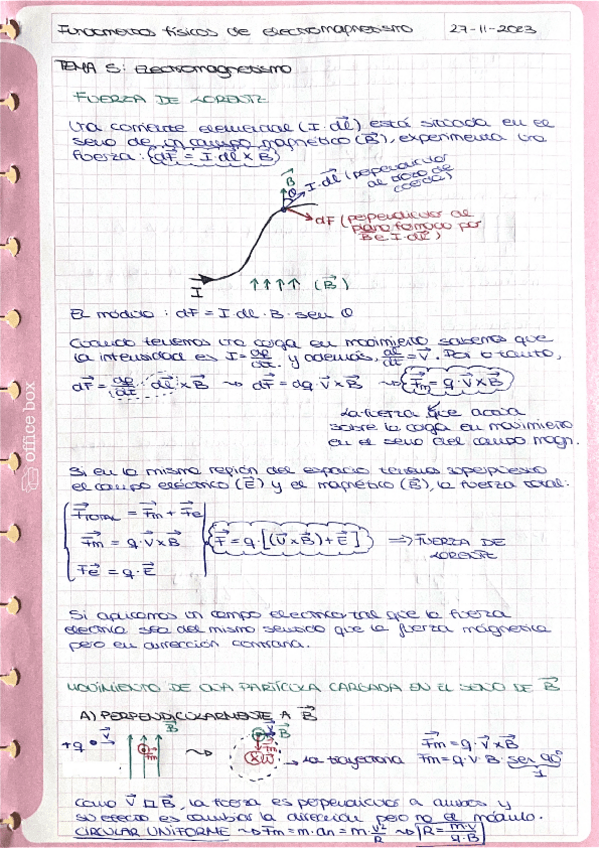 Fundamentos físicos de electromagnetismo 27-11-2023
TEMA 5: Electromagnetismo
FUERZA DE LORENTZ
Una corriente elemental (I·dl⃗) está situada en el
seno de un campo magnético (B⃗), experimenta una
fuerza: dF⃗ = I·dl⃗ x B⃗
B⃗
θ
I·dl⃗ (perpendicular
al trozo de
cuerda)
dF (perpendicular al
plano formado por
B e I·dl⃗)
I
↑↑↑↑ (B⃗)
El módulo: dF = I·dl·B·sen θ
Cuando tenemos una carga en movimiento sabemos que
la intensidad es I = dq/dt y además, dl⃗/dt = V⃗. Por o tanto,
dF⃗ = dq/dt · dl⃗ x B⃗ ⇝ dF⃗ = dq·V⃗ x B⃗ ⇝ F⃗m = q·V⃗ x B⃗
La fuerza que actúa
sobre la carga en movimiento
en el seno del campo magn.
Si en la misma región del espacio tenemos superpuesto
el campo eléctrico (E⃗) y el magnético (B⃗), la fuerza total:
F⃗TOTAL = F⃗m + F⃗e
F⃗m = q·V⃗ x B⃗
F⃗e = q·E⃗
F⃗ = q·[(V⃗ x B⃗) + E⃗] ⇒ FUERZA DE
LORENTZ
Si aplicamos un campo electrico tal que la fuerza
electrica sea del mismo sentido que la fuerza magnetica
pero en dirección contraria.
MOVIMIENTO DE UNA PARTÍCULA CARGADA EN EL SENO DE B⃗
A) PERPENDICULARMENTE A B⃗
+q V⃗
B⃗
F⃗m
⇝
V⃗ B⃗
F⃗m
W⃗
La trayectoria
F⃗m = q·V⃗ x B⃗
Fm = q·V·B·sen 90°
1
Como V⃗ ⊥ B⃗, la fuerza es perpendicular a ambos y
su efecto es cambiar la dirección pero no el módulo.
CIRCULAR UNIFORME ⇝ Fm = m·an = m·v²/R ⇝ R = m·v/q·B
office box